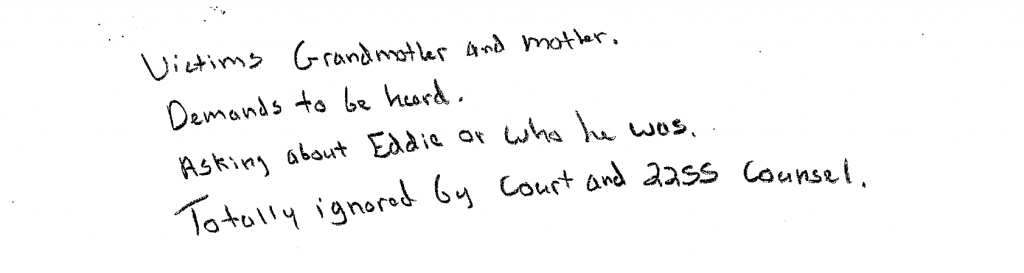 Victims Grandmother and mother.
Demands to be heard.
Asking about Eddie or who he was.
Totally ignored by Court and 2255 Counsel.